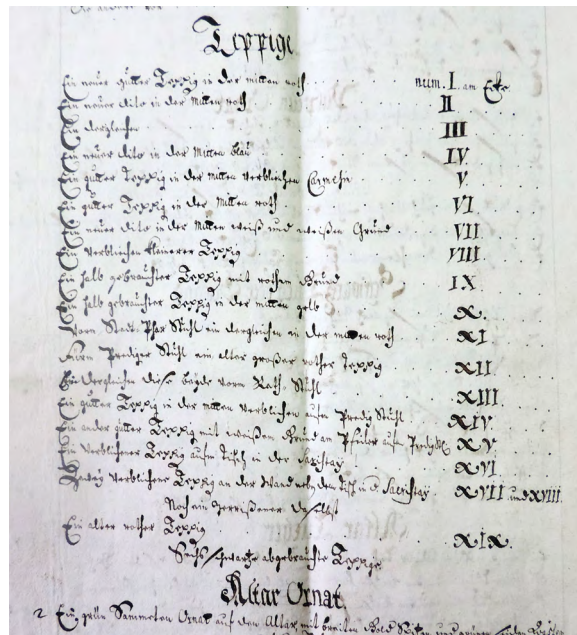 Teppige
Ein neüer gutter Teppig in der mitten roth num. I. am Ecke
Ein neüer dito in der Mitten roth II
Ein dergleichen III
Ein neüer dito in der Mitten blau IV
Ein gutter Teppig in der mitten verblichen Carmesin V.
Ein gutter Teppig in der Mitten roth VI
Ein neüer dito in der Mitten weiß und weißen Grund VII
Ein verblichen kleinerer Teppig VIII
Ein halb gebrauchter Teppig mit rothem Grund IX
Ein halb gebrauchter Teppig in der mitten gelb X.
Vorm Stadt Phar Stühl ein dergleichen in der mitten roth XI
Prediger Stühl ein alter großer rother Teppig XII
Ein dergleichen vorm Rath Stühl XIII
Ein gutter Teppig in der mitten verblichen aufm Predig Stühl XIV.
Ein ander gutter Teppig mit weißem Grund am Pfeiler aufm XV.
Ein verblichener Teppig aufm Tisch in der Sacristay XVI
verblichene Teppig an der Wand neben dem Tisch in d. Sacristay XVII und XVIII.
Noch ein zerrißener daselbst
Ein alter rother Teppig XIX.
Sechs abgebrauchte Teppige
Altar Ornat
2 Ein grün Sammeten Ornat auf den Altar mit breiten Gold und